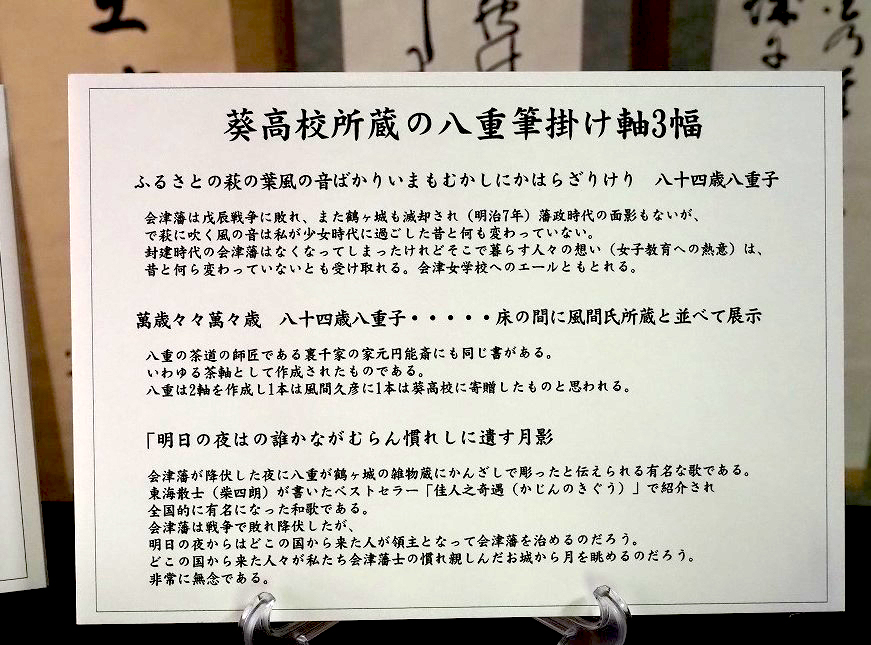 葵高校所蔵の八重筆掛け軸3幅
ふるさとの萩の葉風の音ばかりいまもむかしにかはらざりけり　八十四歳八重子
会津藩は戊辰戦争に敗れ、また鶴ヶ城も滅却され（明治7年）藩政時代の面影もないが、
で萩に吹く風の音は私が少女時代に過ごした昔と何も変わっていない。
封建時代の会津藩はなくなってしまったけれどそこで暮らす人々の想い（女子教育への熱意）は、
昔と何ら変わっていないとも受け取れる。会津女学校へのエールともとれる。
萬歳々々萬々歳　八十四歳八重子・・・・・床の間に風間氏所蔵と並べて展示
八重の茶道の師匠である裏千家の家元円能斎にも同じ書がある。
いわゆる茶軸として作成されたものである。
八重は2軸を作成し1本は風間久彦に1本は葵高校に寄贈したものと思われる。
「明日の夜はの誰かながむらん慣れしに遺す月影
会津藩が降伏した夜に八重が鶴ヶ城の雑物蔵にかんざしで彫ったと伝えられる有名な歌である。
東海散士（柴四朗）が書いたベストセラー「佳人之奇遇（かじんのきぐう）」で紹介され
全国的に有名になった和歌である。
会津藩は戦争で敗れ降伏したが、
明日の夜からはどこの国から来た人が領主となって会津藩を治めるのだろう。
どこの国から来た人々が私たち会津藩士の慣れ親しんだお城から月を眺めるのだろう。
非常に無念である。